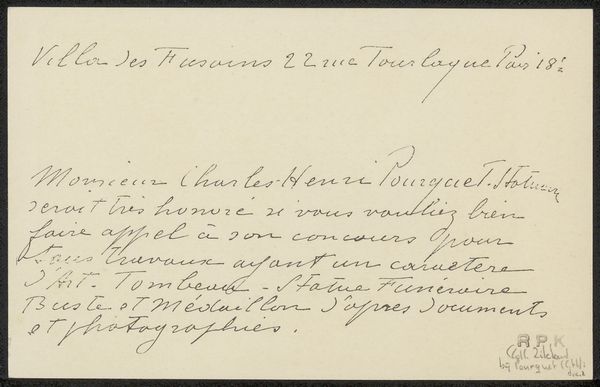 Villa des Fusains 22 rue Tourlaque Paris 18e
Monsieur Charles-Henri Pourquet. Statuaire
serait très honoré si vous vouliez bien
faire appel à son concours pour
tous travaux ayant un caractère
d'Art. Tombeau - Statue Funéraire
Buste et Médaillon d'après documents
et photographies.
RPK
Coll.
by Pourquet